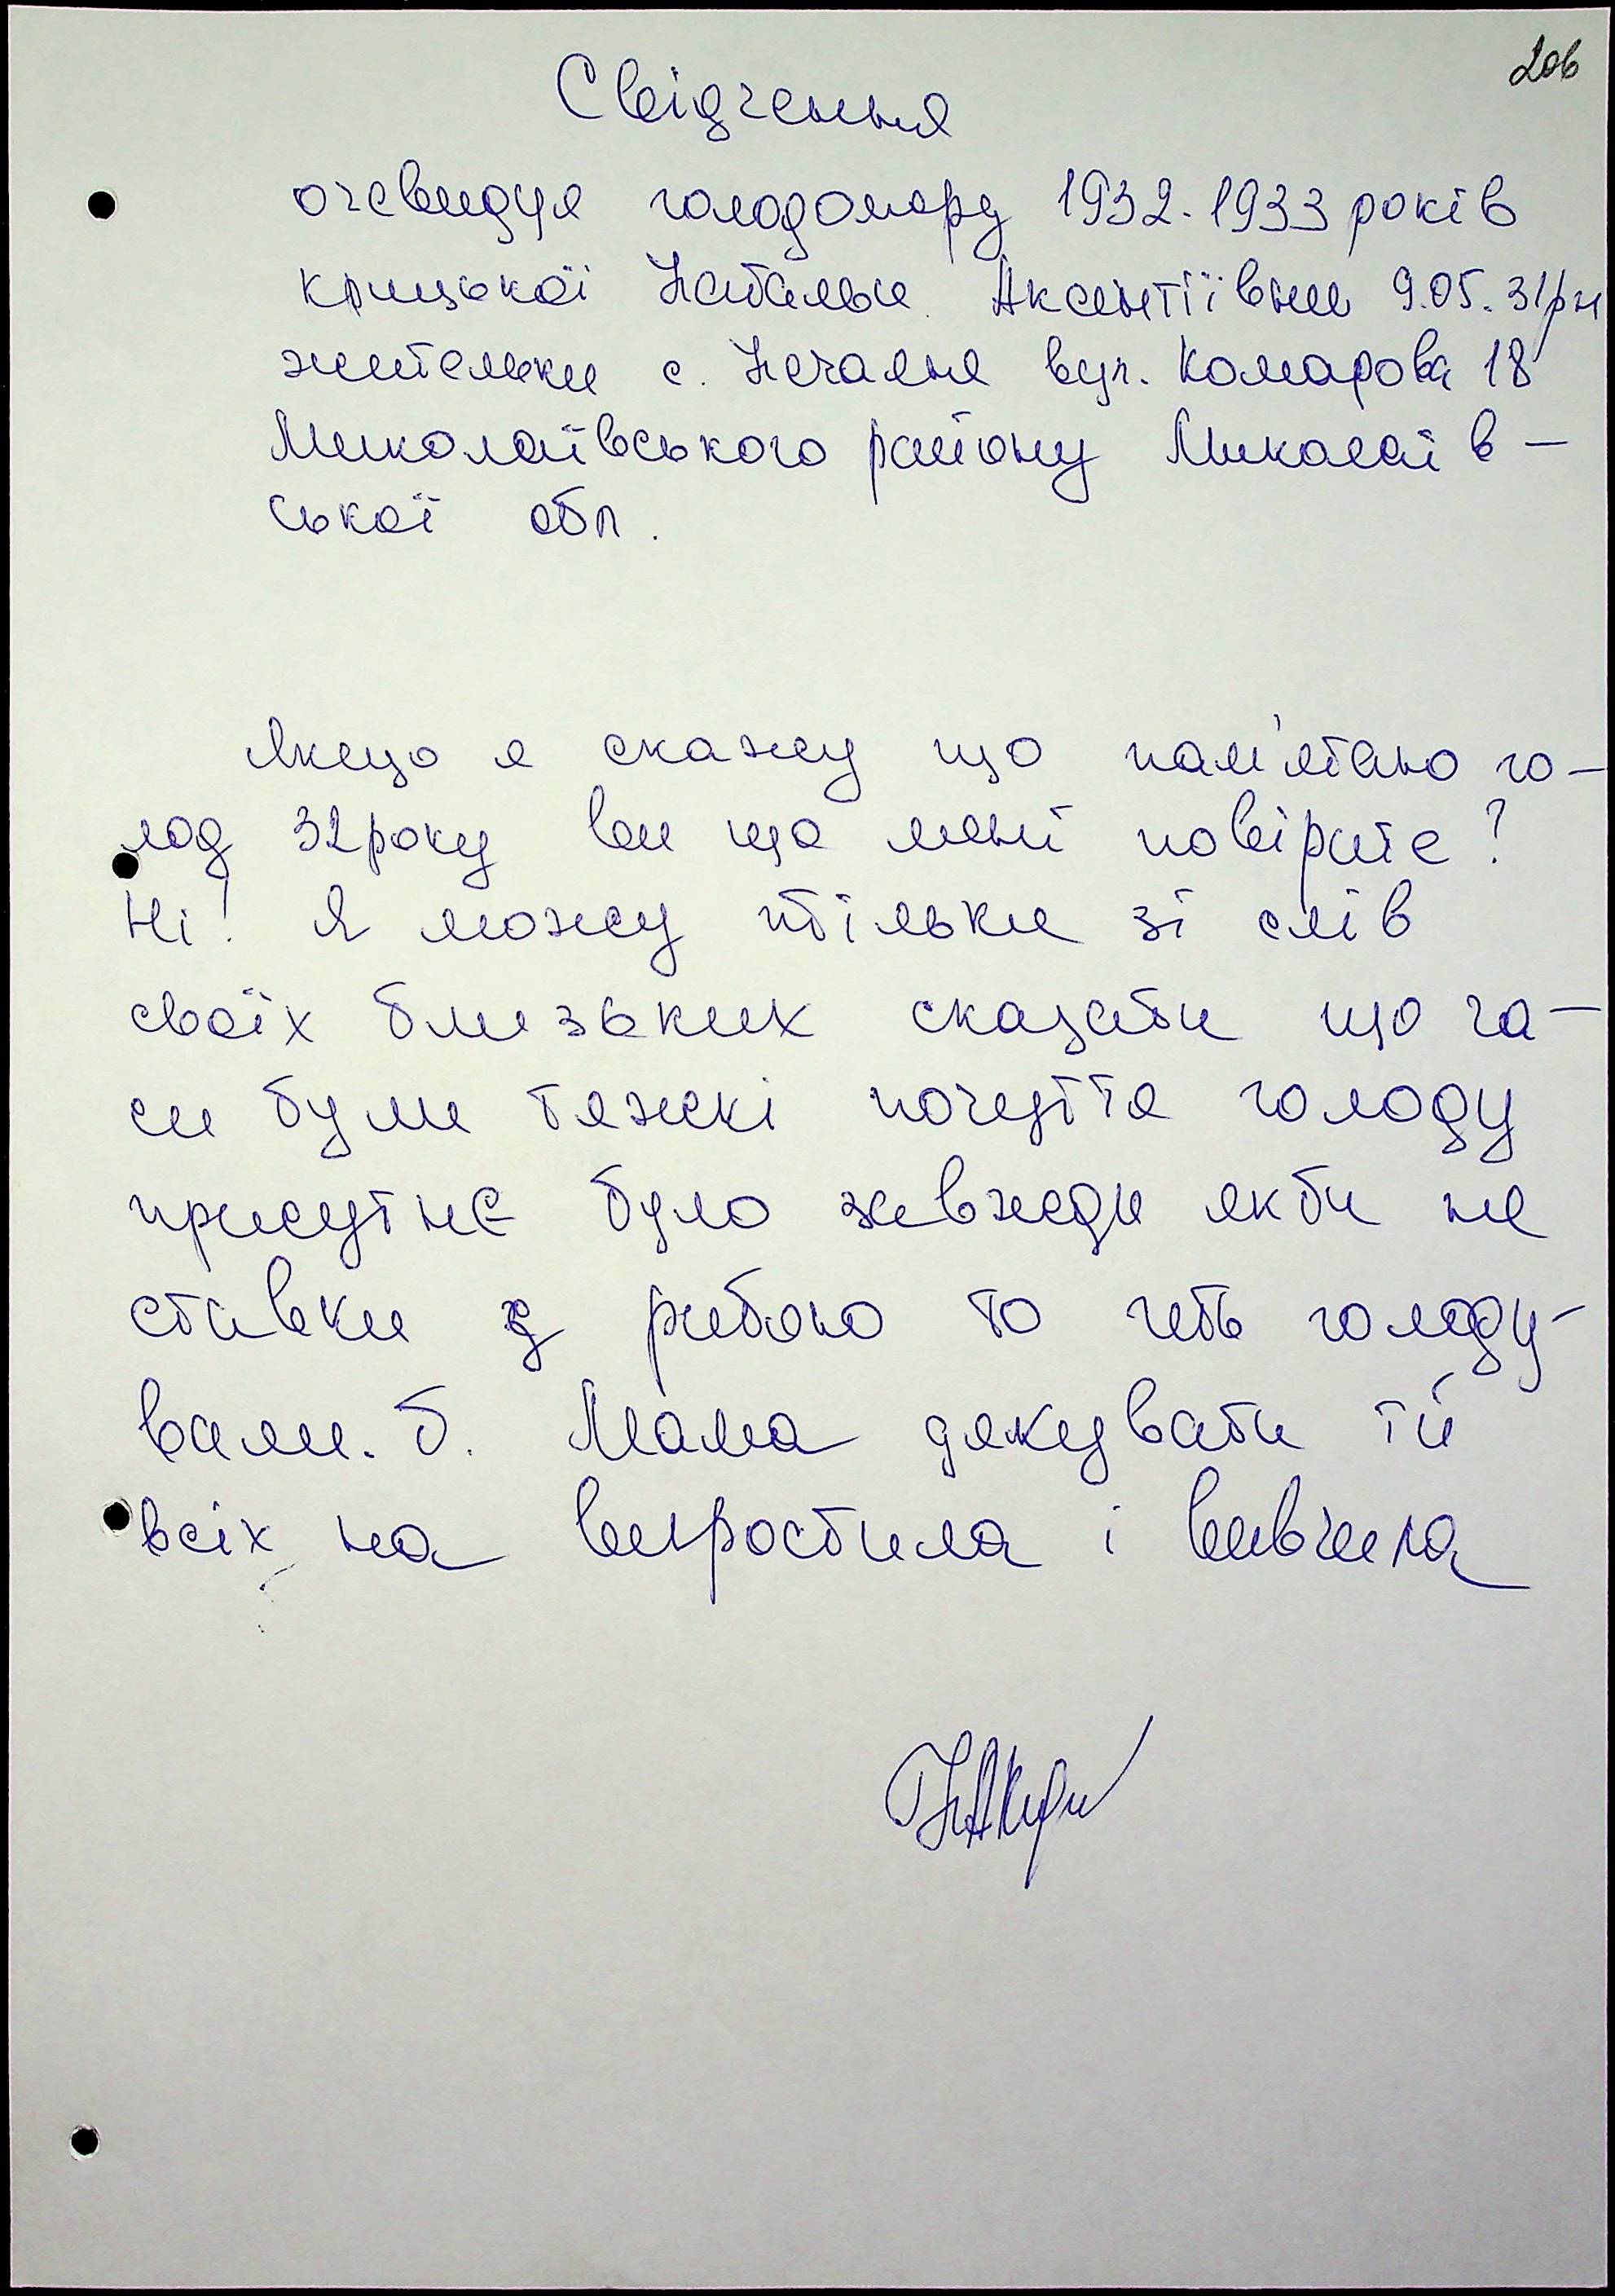 206
Свідчення
очевидця голодомору 1932-1933 років
Крицької Натальи Аксентіївни 9.05.31рн
жительки с. Нечаяне вул. Комарова 18
Миколаївського району Миколаїв-
ської обл.
Якщо я скажу що пам'ятаю го-
лод 32 року ви що мені повірите?
Ні! Я можу тільки зі слів
своїх близьких сказати що ча-
си були тяжкі почуття голоду
присутнє було завжди якби не
ставки з рибою то геть голоду-
вали. б. Мама дякувати їй
всіх на виростила і вивчила